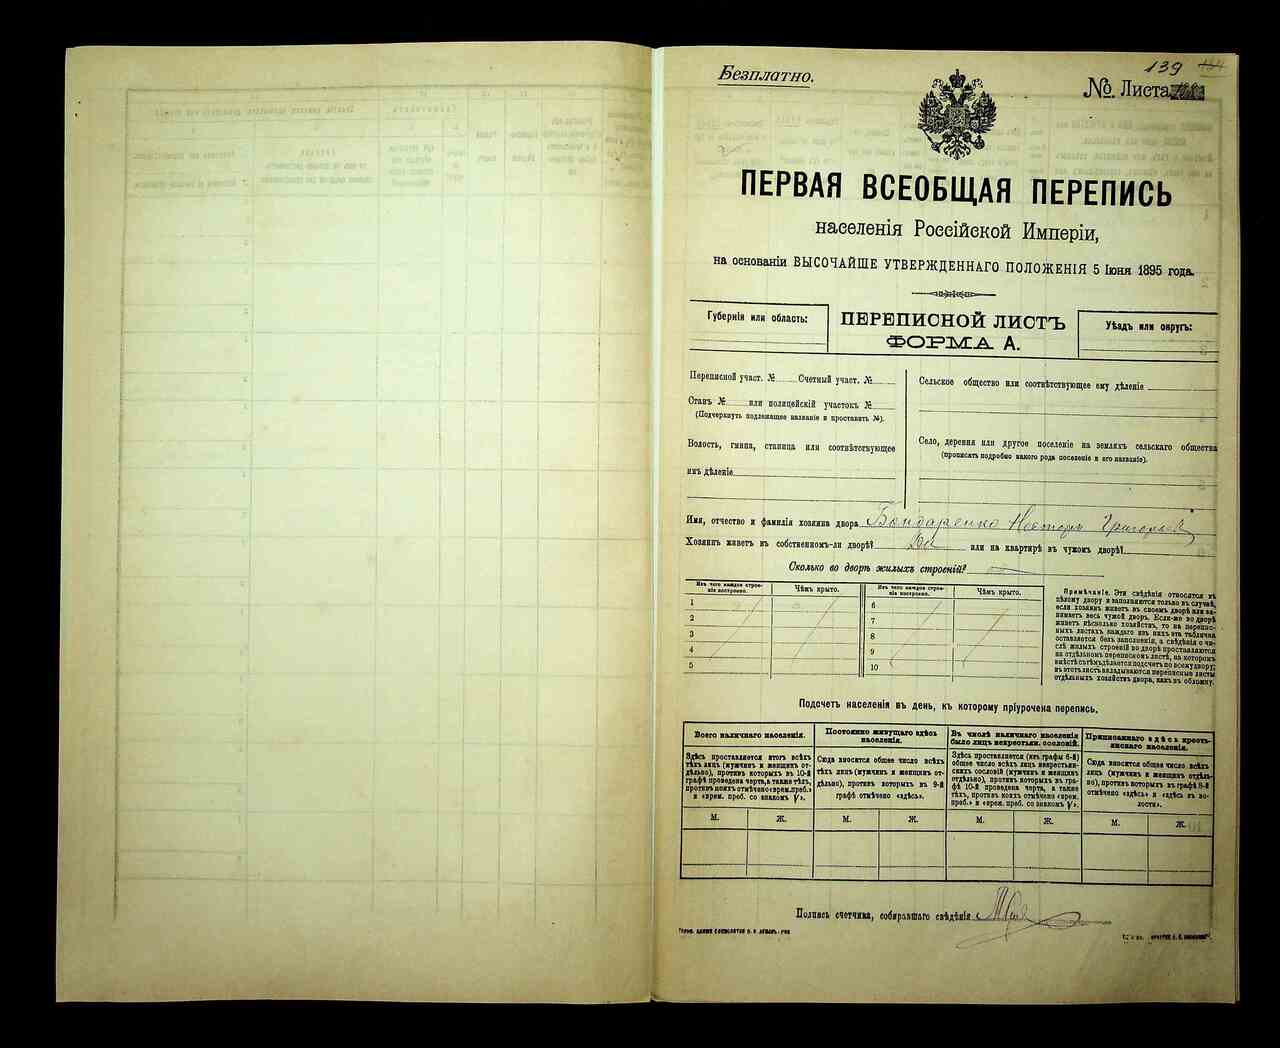 139
Безплатно.
№ Листа
ПЕРВАЯ ВСЕОБЩАЯ ПЕРЕПИСЬ
населенія Россійской Имперіи,
на основаніи ВЫСОЧАЙШЕ УТВЕРЖДЕННАГО ПОЛОЖЕНІЯ 5 Іюня 1895 года.
Губернія или область:
ПЕРЕПИСНОЙ ЛИСТЪ
ФОРМА А.
Уѣздъ или округъ:
Переписной участ. № Счетный участ. №
Станъ № или полицейскій участокъ №
(Подчеркнуть подлежащее названіе и проставить №).
Волость, гмина, станица или соотвѣтствующее
имъ дѣленіе
Сельское общество или соотвѣтствующее ему дѣленіе
Село, деревня или другое поселеніе на земляхъ сельскаго общества
(прописать подробно какого рода поселеніе и его названіе).
Имя, отчество и фамилія хозяина двора Бондаренко Несторъ Григорьев
Хозяинъ живетъ въ собственномъ-ли дворѣ? Да или на квартирѣ въ чужомъ дворѣ?
Сколько во дворѣ жилыхъ строеній?
Изъ чего каждое строеніе построено.
Чѣмъ крыто.
Изъ чего каждое строеніе построено.
Чѣмъ крыто.
1
2
3
4
5
6
7
8
9
10
Примѣчаніе. Эти свѣдѣнія относятся къ
цѣлому двору и заполняются только въ случаѣ,
если хозяинъ живетъ въ своемъ дворѣ или занимаетъ
весь чужой дворъ. Если-же во дворѣ
живетъ нѣсколько хозяйствъ, то на переписныхъ
листахъ каждаго изъ нихъ эта табличка
оставляется безъ заполненія, а свѣдѣнія о числѣ
жилыхъ строеній во дворѣ проставляются
на отдѣльномъ переписномъ листѣ, на которомъ
вмѣстѣ съ тѣмъ дѣлается подсчетъ по всему двору;
въ этотъ листъ вкладываются переписные листы
отдѣльныхъ хозяйствъ двора, какъ въ обложку.
Подсчетъ населенія въ день, къ которому пріурочена перепись.
Всего наличнаго населенія.
Постоянно живущаго здѣсь
населенія.
Въ числѣ наличнаго населенія
было лицъ некрестьян. сословій.
Приписаннаго здѣсь крестьянскаго
населенія.
Здѣсь проставляется итогъ всѣхъ
тѣхъ лицъ (мужчинъ и женщинъ отдѣльно),
противъ которыхъ въ 10-й
графѣ проведена черта, а также тѣхъ,
противъ коихъ отмѣчено «врем. преб.»
и «врем. преб. со знакомъ V».
Сюда вносится общее число всѣхъ
тѣхъ лицъ (мужчинъ и женщинъ отдѣльно),
противъ которыхъ въ 9-й
графѣ отмѣчено «здѣсь».
Здѣсь проставляется (изъ графы 6-й)
общее число всѣхъ лицъ некрестьянскихъ
сословій (мужчинъ и женщинъ
отдѣльно), противъ которыхъ въ графѣ
10-й проведена черта, а также
тѣхъ, противъ коихъ отмѣчено «врем.
преб.» и «врем. преб. со знакомъ V».
Сюда вносится общее число всѣхъ
лицъ (мужчинъ и женщинъ отдѣльно),
противъ которыхъ въ графѣ 8-й
отмѣчено «здѣсь» и «здѣсь въ волости».
М. Ж. М. Ж. М. Ж. М. Ж.
Подпись счетчика, собиравшаго свѣдѣнія